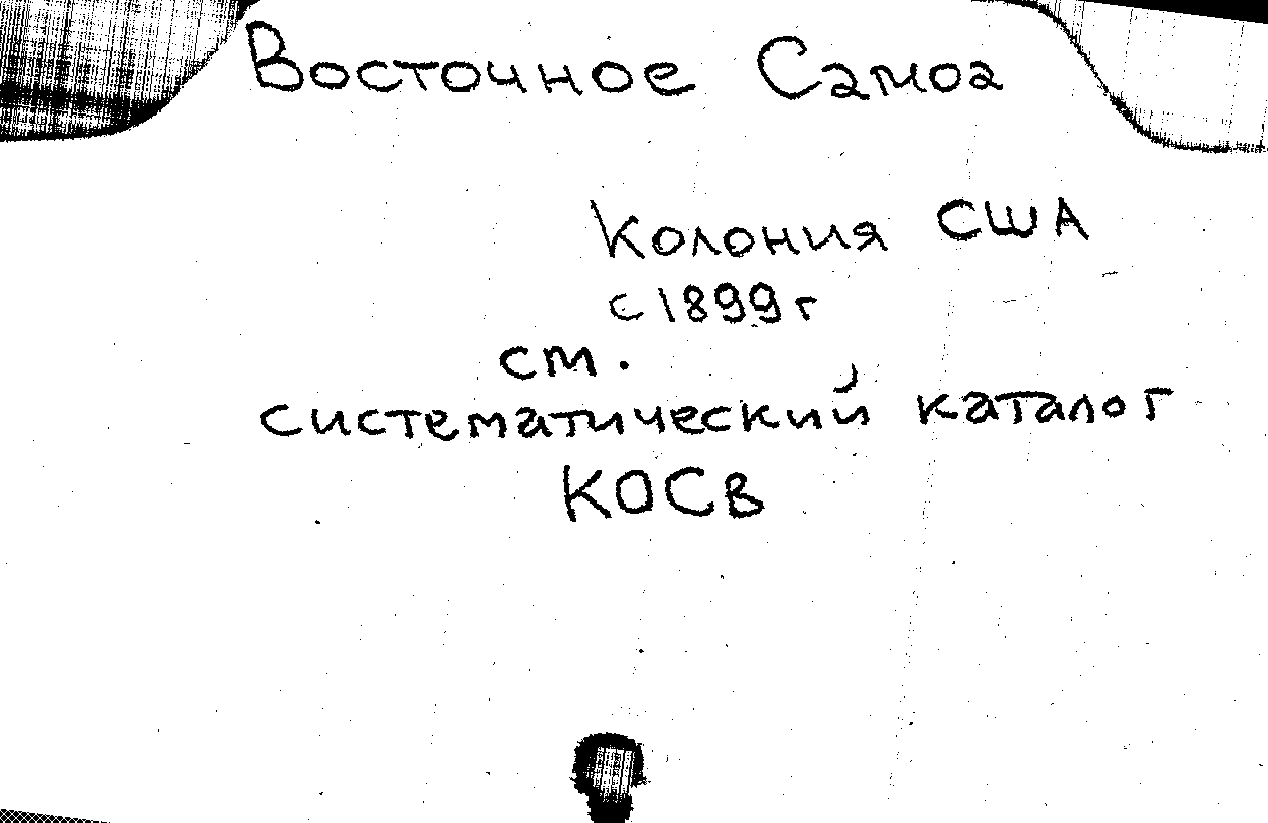 Восточное Самоа
Колония США
с 1899 г
см.
систематический каталог
КОСВ